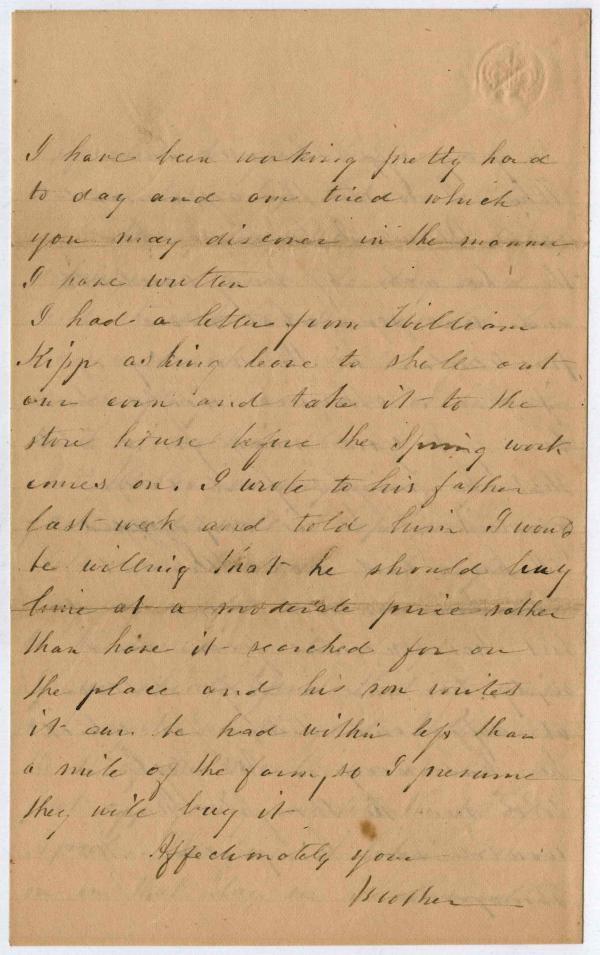 I have been working pretty hard
to day and am tired which
you may discover in the manner
I have written
I had a letter from William
Kipp asking leave to shell out
our corn and take it to the
store house before the Spring work
comes on. I wrote to his father
last week and told him I would
be willing that he should buy
lime at a moderate price rather
than have it searched for on
the place and his son writes
it can be had within less than
a mile of the farm, so I presume
they will buy it
Affectionately your
Brother